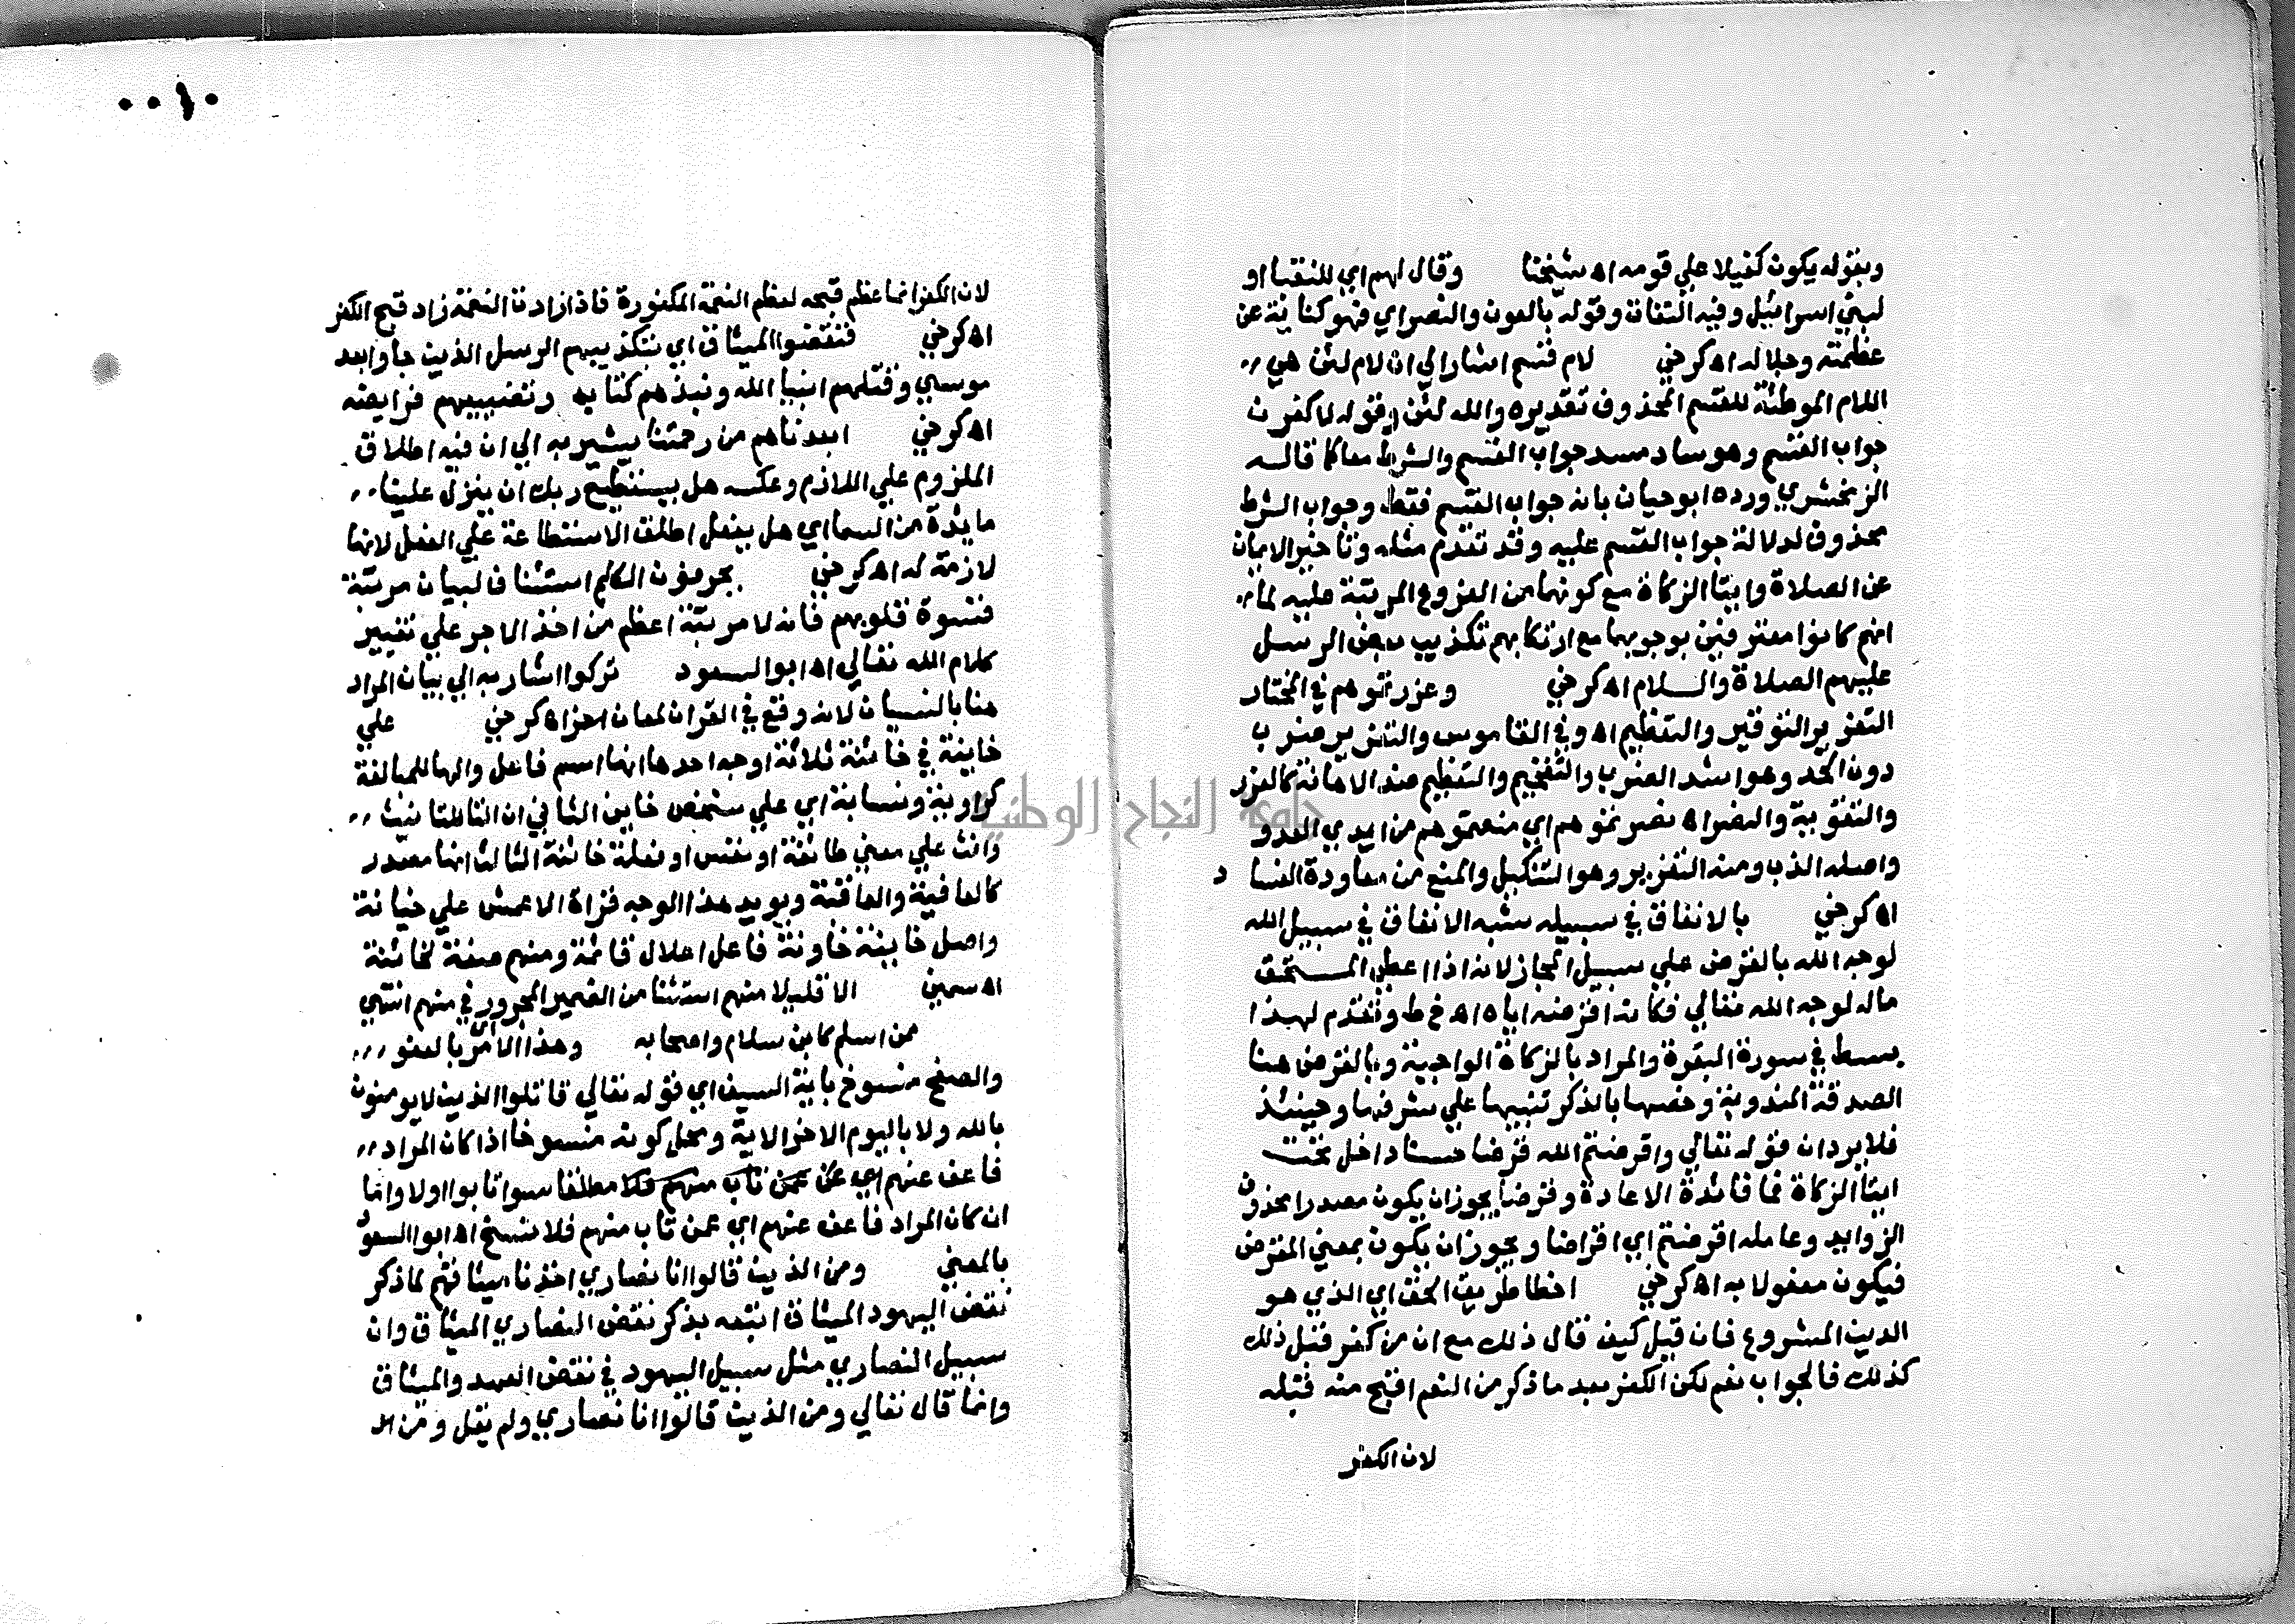 وبقوله يكون كفيلا علي قومه اه شيخنا وقال لهم اي للنقبا او
لبني اسرائيل وفيه التفات وقوله بالعون والنصر اي فهو كناية عن
عظمته وجلاله اه كرخي لام قسم اشار الي ان لام لئن هي
اللام الموطئة للقسم المحذوف تقديره والله لئن وقوله لاكفرن
جواب القسم وهو ساد مسد جواب القسم والشرط معا كما قاله
الزمخشري ورده ابو حيان بانه جواب القسم فقط وجواب الشرط
محذوف لدلالة جواب القسم عليه وقد تقدم مثله وتاخير الايمان
عن الصلاة وايتا الزكاة مع كونهما من الفروع المرتبة عليه لما
انهم كانوا معترفين بوجوبهما مع ارتكابهم تكذيب بعض الرسل
عليهم الصلاة والسلام اه كرخي وعزرتموهم في المختار
التعزير التوقير والتعظيم اه وفي القاموس والتعزير ضرب
دون الحد وهو اشد الضرب والتفخيم والتعظيم ضد الاهانة كالعزر
والتقوية والنصر اه نصرتموهم اي منعتموهم من ايدي العدو
واصله الذب ومنه التعزير وهو التنكيل والمنع من معاودة الفساد
اه كرخي بالانفاق في سبيله شبه الانفاق في سبيل الله
لوجه الله بالقرض علي سبيل المجاز لانه اذا اعطي المستحق
ماله لوجه الله تعالي فكانه اقرضه اياه اه خط وتقدم لهذا
بسط في سورة البقرة والمراد بالزكاة الواجبة وبالقرض هنا
الصدقة المندوبة وخصها بالذكر تنبيها علي شرفها وحينئذ
فلا يرد ان قوله تعالي واقرضتم الله قرضا حسنا داخل تحت
ايتا الزكاة فما فائدة الاعادة وقرضا يجوز ان يكون مصدرا محذوف
الزوايد وعامله اقرضتم اي اقراضا ويجوز ان يكون بمعني المقرض
فيكون مفعولا به اه كرخي اخطا طريق الحق اي الذي هو
الدين المشروع فان قيل كيف قال ذلك مع ان من كفر قبل ذلك
كذلك فالجواب نعم لكن الكفر بعد ما ذكر من النعم اقبح منه قبله
لان الكفر
٠٠١٠
لان الكفر انما عظم قبحه لعظم النعمة المكفورة فاذا زادت النعمة زاد قبح الكفر
اه كرخي فنقضوا الميثاق اي بتكذيبهم الرسل الذين جاوا بعد
موسي وقتلهم انبيا الله ونبذهم كتابه وتضييعهم فرايضه
اه كرخي ابعدناهم من رحمتنا يشير به الي ان فيه اطلاق
الملزوم علي اللازم وعكسه هل يستطيع ربك ان ينزل علينا
مايدة من السما اي هل يفعل اطلق الاستطاعة علي الفعل لانها
لازمة له اه كرخي يحرفون الكلم استئناف لبيان مرتبة
قسوة قلوبهم فانه لا مرتبة اعظم من اخذ الاجر علي تغيير
كلام الله تعالي اه ابو السعود تركوا اشار به الي بيان المراد
هنا بالنسيان لانه وقع في القران لمعان اخر اه كرخي علي
خاينة في خائنة ثلاثة اوجه احدها انها اسم فاعل والها للمبالغة
كراوية ونسابة اي علي شخص خاين الثاني ان التا للتانيث
وانث علي معني طائفة او نفس او فعلة خائنة الثالث انها مصدر
كالعافية والعاقبة ويويد هذا الوجه قراة الاعمش علي خيانة
واصل خاينة خاونة فاعل اعلال قائمة ومنهم صفة لخائنة
اه سمين الا قليلا منهم استثنا من الضمير المجرور في منهم انتهي
ممن اسلم كابن سلام واصحابه وهذا الامر بالعفو
والصفح منسوخ باية السيف اي قوله تعالي قاتلوا الذين لا يومنون
بالله ولا باليوم الاخر الاية ومحل كونه منسوخا اذا كان المراد
فاعف عنهم اي عن عمن تاب منهم فلا مطلقا سوا تابوا اولا واما
ان كان المراد فاعف عنهم اي عمن تاب منهم فلا نسخ اه ابو السعود
بالمعني ومن الذين قالوا انا نصاري اخذنا ميثاقهم لما ذكر
نقض اليهود الميثاق اتبعه بذكر نقض النصاري الميثاق وان
سبيل النصاري مثل سبيل اليهود في نقض العهد والميثاق
وانما قال تعالي ومن الذين قالوا انا نصاري ولم يقل ومن الـ
جامعة النجاح الوطنية